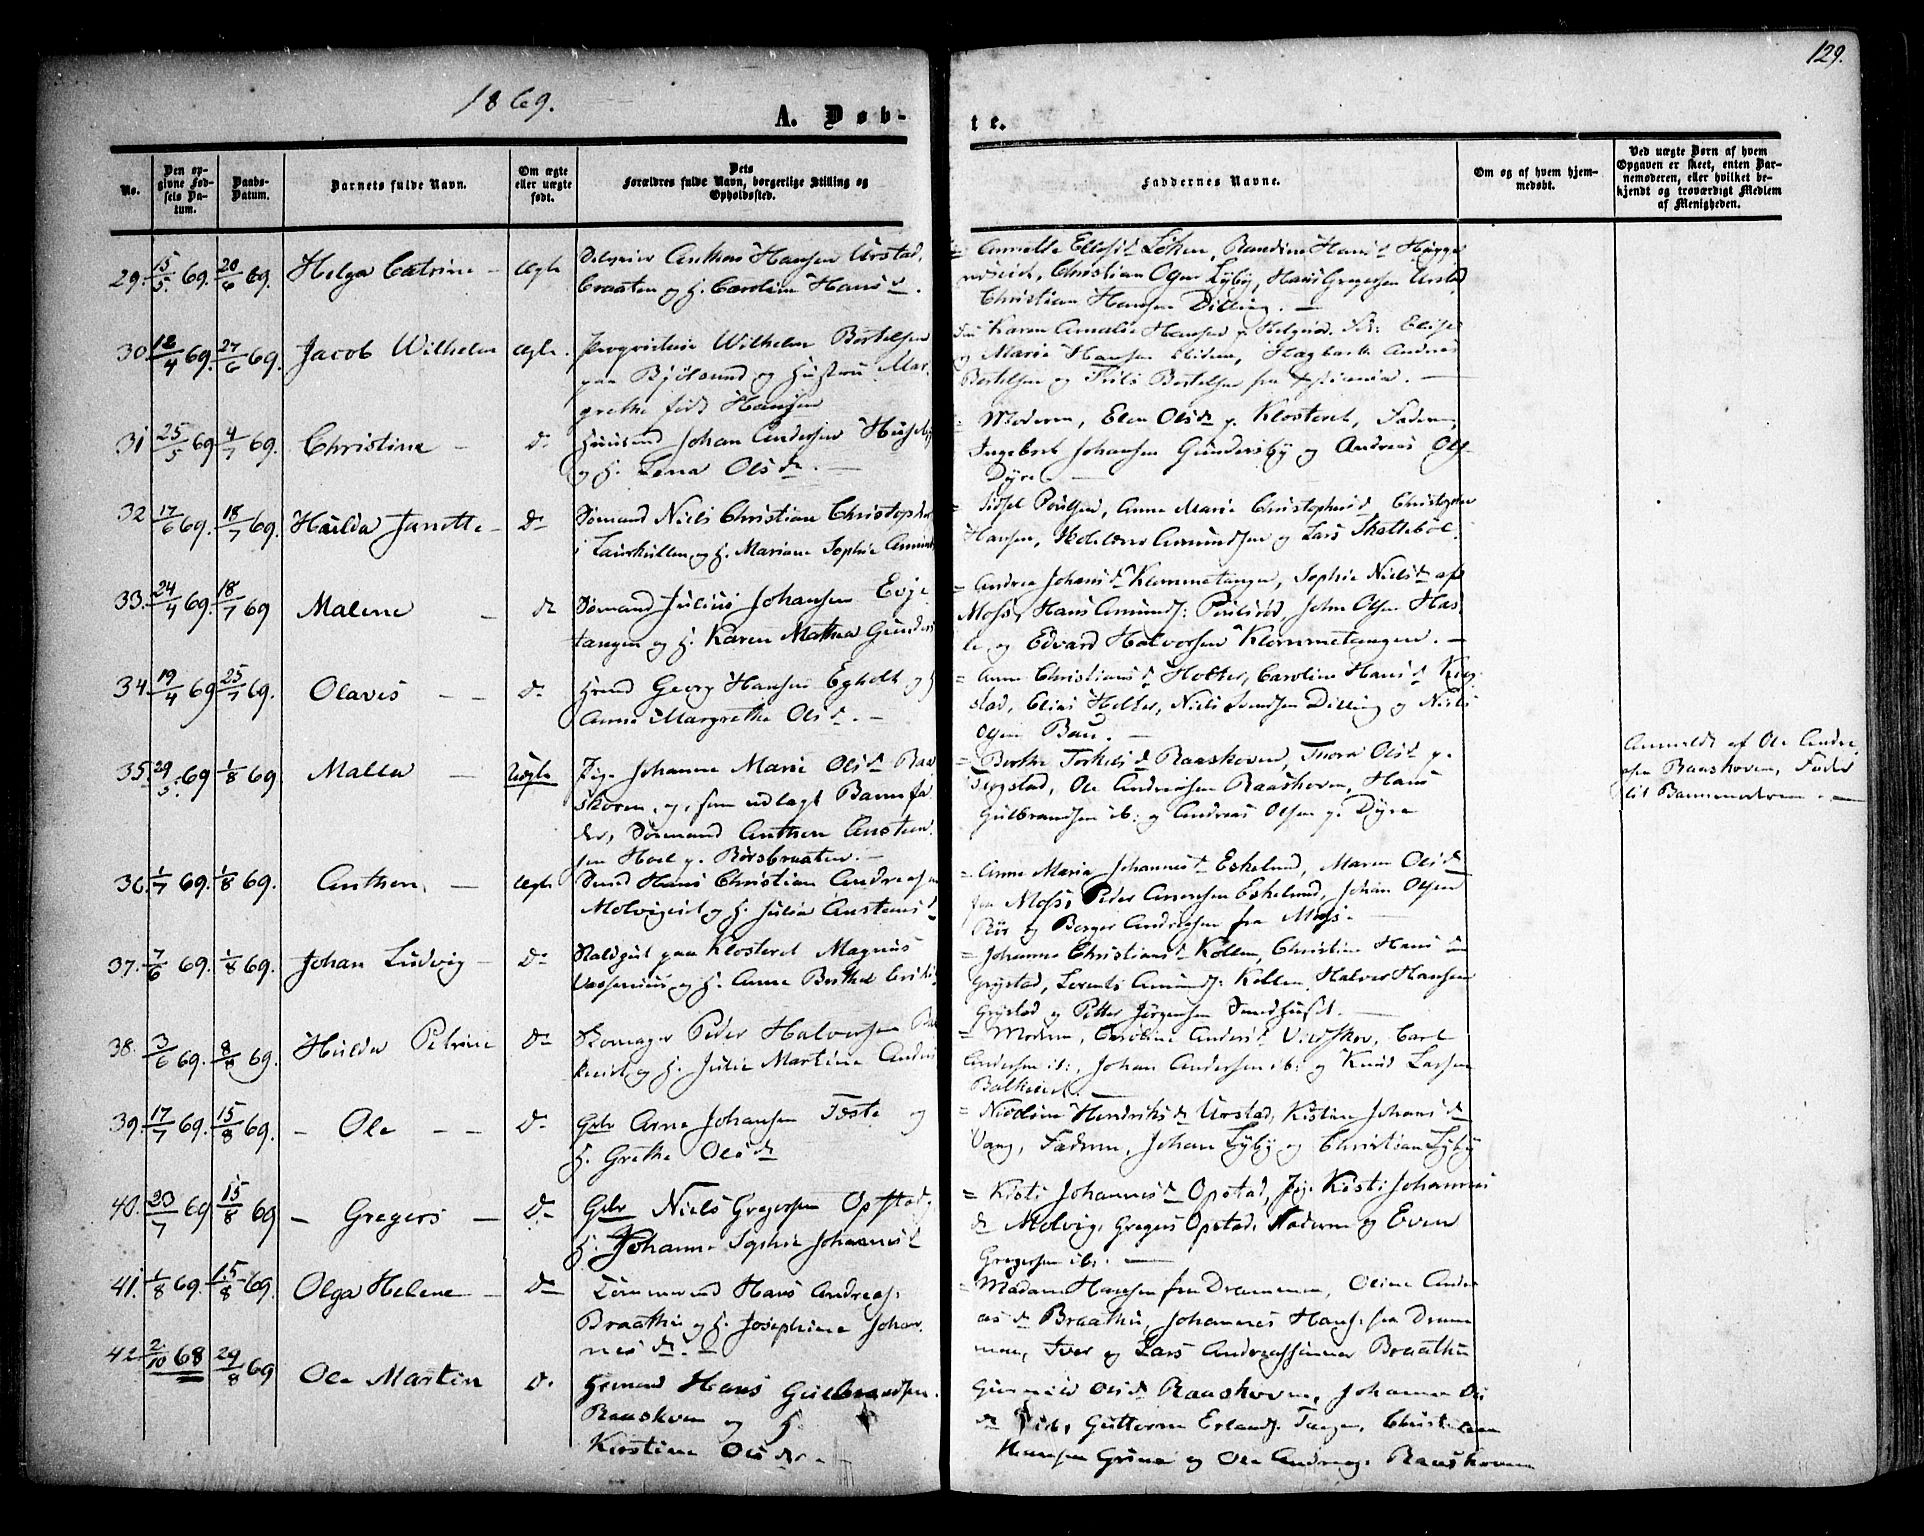 129.
1869.
A. Døb-
te.
No.
Den op-
givne Fød-
sels Da-
tum.
Daabs-
Datum.
Barnets fulde Navn.
Om ægte
eller uægte
født.
Dets
Forældres fulde Navn, borgerlige Stilling og
Opholdssted.
Faddernes Navne.
Om og af hvem hjem-
medøbt.
Ved uægte Børn af hvem
Opgaven er skeet, enten Bar-
nemoderen, eller hvilket be-
kjendt og troværdigt Medlem
af Menigheden.
29. 15/5 69. 20/6 69. Helga Catrine - ægte
Anthon Hansen Urstad,
Braaten og H. Caroline Hansd.
Annette Ellefsd. Löken, Randine Hansd. Hugge
Christian Olsen Lyby, Hans Gregersen Urstad
Christian Hansen Dilling. -
30. 12/4 69. 27/6 69. Jacob Wilhelm ægte.
Proprietair Wilhelm Bertelsen
paa Bjölsund og Hustru Mar-
grethe född Hansen
Karen Amalie Hansen Elise
og Marie Hansen Hagbarth Andreas
Bertelsen og Bertelsen fra -
31 25/5 69 4/7 69. Christine - Do
Huusmand Johan Andersen Huseby
og H. Lena Olsdr. -
= Moderen, Elen Olsdr p. Klosteret, Faderen,
Ingebret Johansen Gundersby og Andreas Ols.
Dyre -
32 17/6 69. 18/7 69. Hulda Janette - Do
Sömand Niels Christian Christophers
i Laurkullen og H. Mariane Sophie Amunds
= Sidsel Poulsen, Anne Marie Christophersd. Christopher
Hansen, Amundsen og Lars Skattebøl.
33. 24/4 69. 18/7 69 Malene - do
Sömand Julius Johansen Evje-
tangen og H. Karen Mathea Gunders
= Andrea Johansd. Klommetangen, Sophie Nielsdr af
Moss, Hans Amunds: John Olsen Has-
le og Edvard Halvorsen Klommetangen. -
34. 19/4 69 25/7 69. Olaves - - Do
Georg Hansen Egholt og H
Anne Margrethe Olsdr. -
= Anne Christiansd Holter, Caroline Hansd.
stad, Elias Holter, Niels Svendsen Dilling og Niels
Olsen Bau. -
35. 29/5 69 1/8 69. Mallea - Uægte
Pige Johanne Marie Olsdr Raa-
skoven, og, som udlagt Barnefa-
der, Sömand Anthon Austen-
sen Hoel p. Rörsbraaten. -
= Berthe Torkelsdr Raaskoven, Thora Olsd. p.
Tergstad, Ole Andreasen Raaskoven, Hans
Gulbrandsen ib: og Andreas Olsen p. Dyre
Anmeldt af Ole Andre-
asen Raaskoven, Fader
til Barnemoderen. -
36. 1/7 69. 1/8 69. Anthon - ægte
Smed Hans Christian Andreasen
Molvigeiet og H. Julia Austensd.
= Anne Maria Johannesd. Eskelund, Maren Olsdr
fra Moss, Peder Arnesen Eskelund, Johan Olsen
Rör og Berger Andreasen fra Moss. -
37. 7/6 69. 1/8 69. Johan Ludvig - Do
paa Klosteret Magnus
og H. Anne Berthea
= Johanne Christiansd. Kollen, Christine Hans
Grystad, Lorents Amunds: Kollen, Halvor Hansen
Grystad og Petter Jörgensen Sandhuset. -
38. 3/6 69. 8/8 69. Hulda Petrine Do
Skomager Peder Halvorsen
og H. Julie Martine Anders
= Moderen, Caroline Andersd. Carl
Andersen ib:, Johan Andersen ib: og Knud Larsen
39. 17/7 69. 15/8 69. - Ole - - Do
Gbr Arne Johansen Toste og
H. Grethe Olsdr
= Nicoline Hendriksdr Urstad, Kistine Johansdr
Vang, Faderen, Johan Lyby og Christian Lyby
40. 23/7 69 15/8 69 - Gregers - Do
Gbr Niels Gregersen Opstad,
H. Johanne Sophie Johannesd
= Kisti Johannesdr Opstad, Pige Kisti Johannes
dr Molvig, Gregers Opstad, Faderen og Even
Gregersen ib. -
41. 1/8 69. 15/8 69. Olga Helene - Do
Tömmermand Hans Andreas:
Braathen og H. Josephine Johan-
nesdr. -
= Madam Hansen fra Drammen, Oline Andre-
asdr Braathen, Johannes Hans: fra Dram-
men, Iver og Lars Andreassönner Braathen
42 2/10 68 29/8 69 Ole Martin Do
Hans Gulbrandsen.
Raaskoven og H.
Kirstine Olsdr. -
Gunnild Olsdr Raaskoven, Johanne Ols-
dr ib, Guttorm Erlands: Tangen, Christian
Hansen Grina og Ole Andreas: Raaskoven